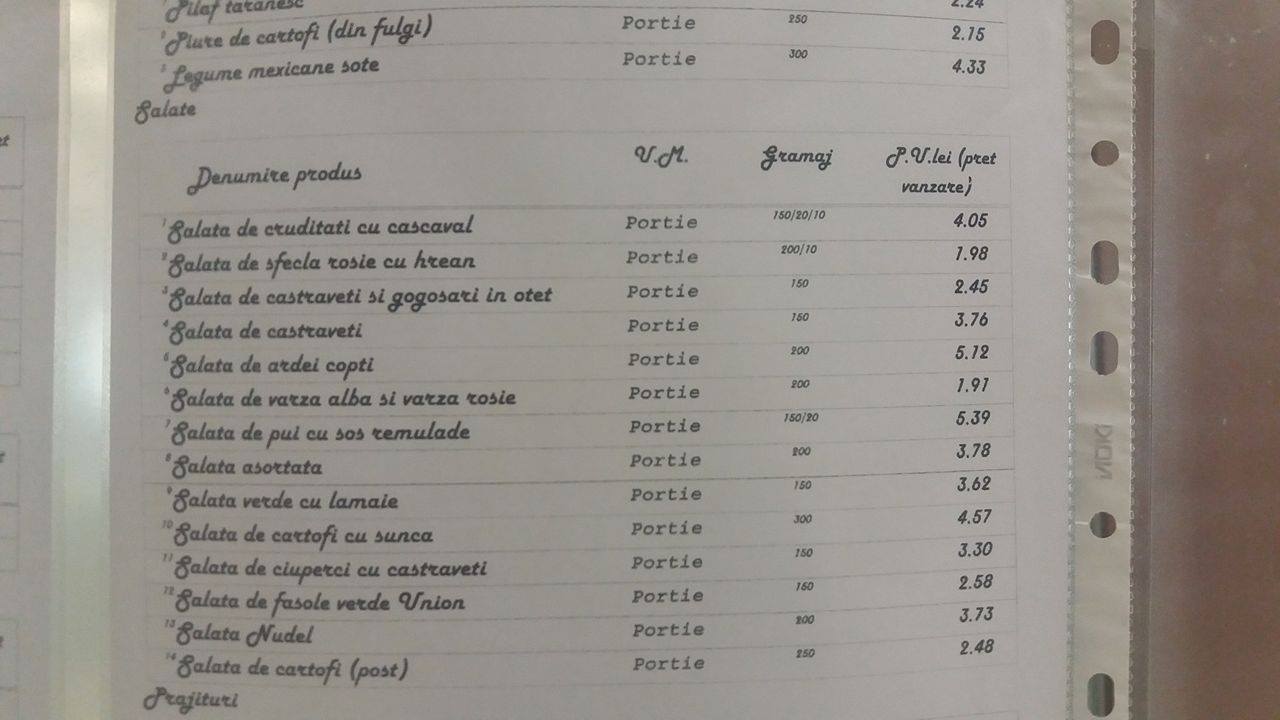 Pilaf taranesc 2.24
Piure de cartofi (din fulgi) Portie 250 2.15
Legume mexicane sote Portie 300 4.33
Salate
Denumire produs U.M. Gramaj P.V.lei (pret vanzare)
1 Salata de cruditati cu cascaval Portie 150/20/10 4.05
2 Salata de sfecla rosie cu hrean Portie 200/10 1.98
3 Salata de castraveti si gogosari in otet Portie 150 2.45
4 Salata de castraveti Portie 150 3.76
5 Salata de ardei copti Portie 200 5.12
6 Salata de varza alba si varza rosie Portie 200 1.91
7 Salata de pui cu sos remulade Portie 150/20 5.39
8 Salata asortata Portie 200 3.78
9 Salata verde cu lamaie Portie 150 3.62
10 Salata de cartofi cu sunca Portie 300 4.57
11 Salata de ciuperci cu castraveti Portie 150 3.30
12 Salata de fasole verde Union Portie 150 2.58
13 Salata Nudel Portie 200 3.73
14 Salata de cartofi (post) Portie 250 2.48
Prajituri